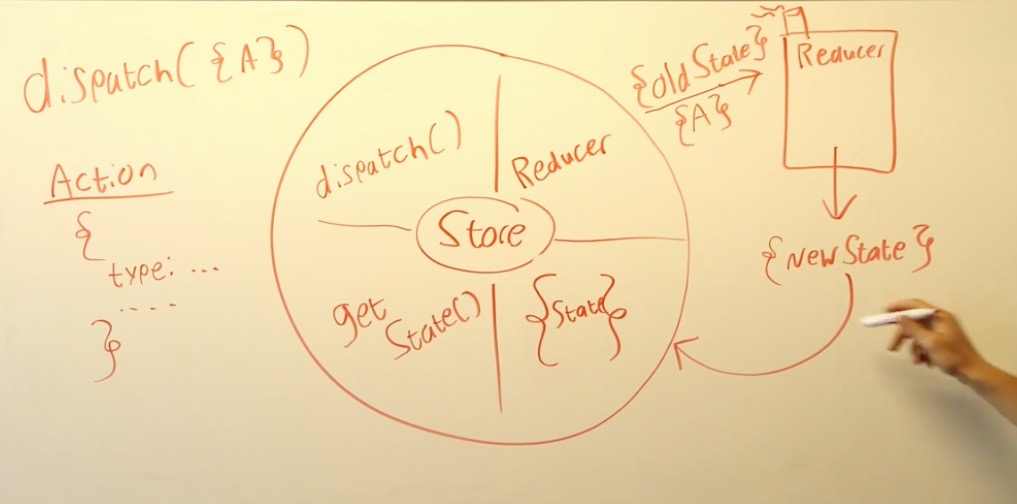 dispatch({A})
Action
{
type: ...
....
}
dispatch()
Reducer
Store
get
State()
{State}
{old State}
{A}
Reducer
{New State}